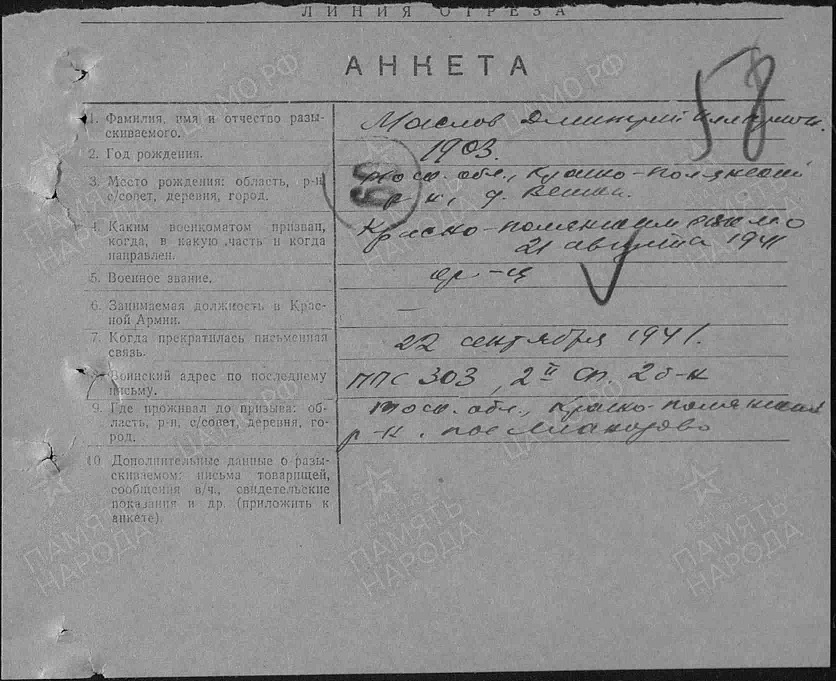 ЛИНИЯ ОТРЕЗА
АНКЕТА
58
1. Фамилия, имя и отчество разы-
скиваемого.
Маслов Дмитрий
2. Год рождения.
1903.
3. Место рождения: область, р-н
с/совет, деревня, город.
Моск. обл., Красно-Полянский
р-н, д.
59
4. Каким военкоматом призван,
когда, в какую часть и когда
направлен.
Красно-Полянским
21 августа 1941
5. Военное звание.
кр-ц
6. Занимаемая должность в Крас-
ной Армии.
—
7. Когда прекратилась письменная
связь.
22 сентября 1941.
8. Воинский адрес по последнему
письму.
ППС 303, 2й сп. 2 б-н
9. Где проживал до призыва: об-
ласть, р-н, с/совет, деревня, го-
род.
Моск. обл., Красно-Полянский
р-н. пос
10. Дополнительные данные о разы-
скиваемом: письма товарищей,
сообщения в/ч., свидетельские
показания и др. (приложить к
анкете).
ЦАМО.РФ
ПАМЯТЬ
НАРОДА
ПАМЯТЬ
НАРОДА
ПАМЯТЬ
НАРОДА